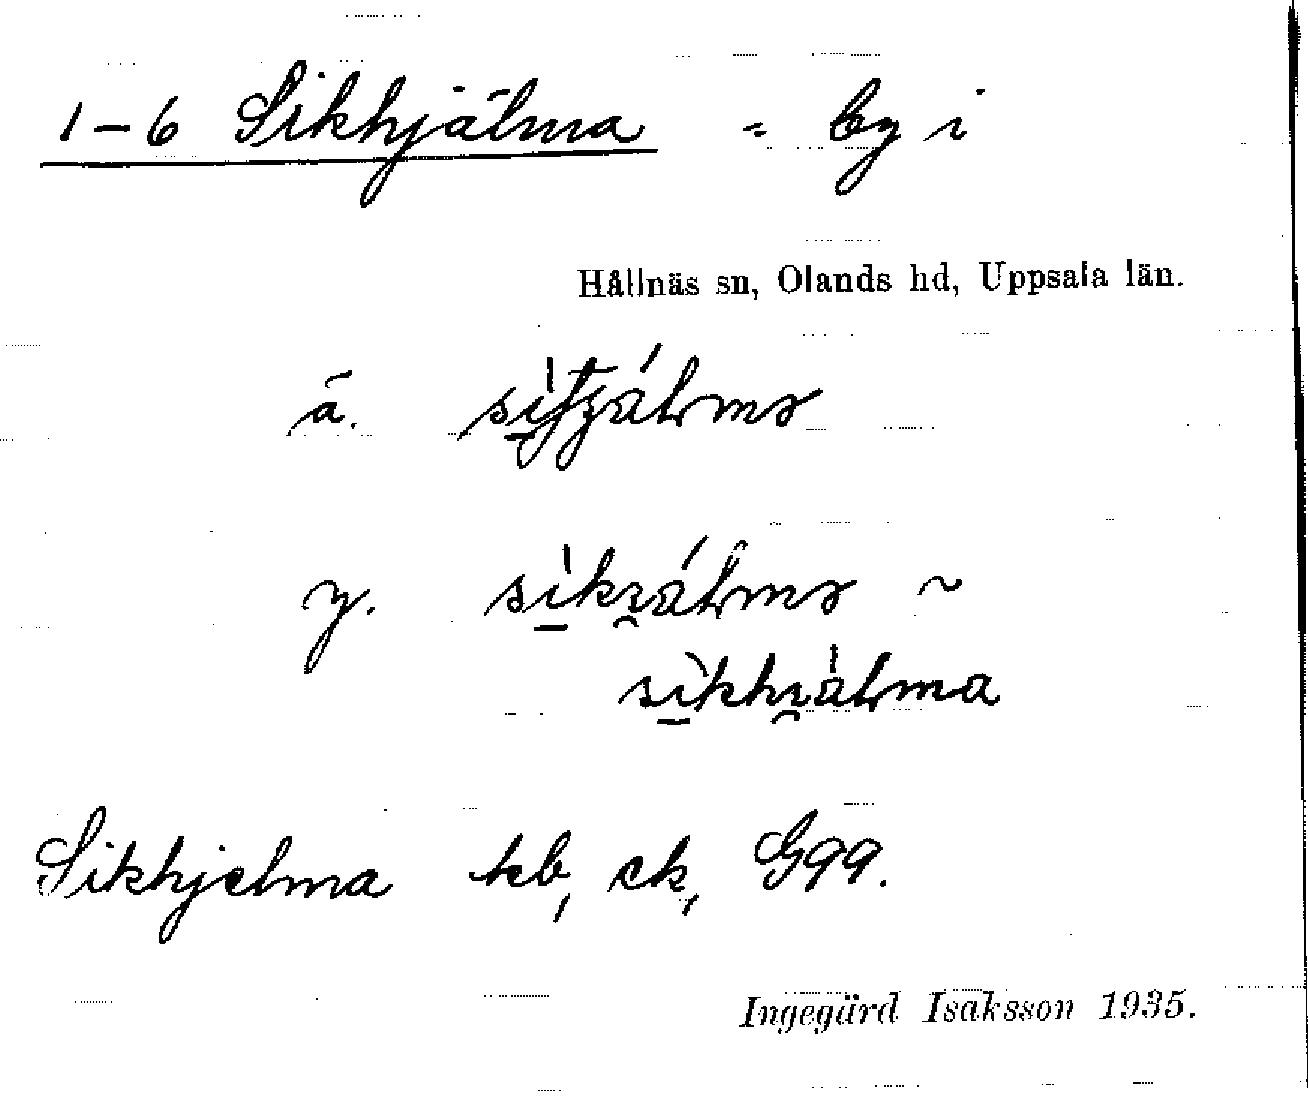 1-6 Sikhjälma = by i
Hållnäs sn, Olands hd, Uppsala län.
ä.
y. ~
Sikhjelma kb, ek, G99.
Ingegärd Isaksson 1935.